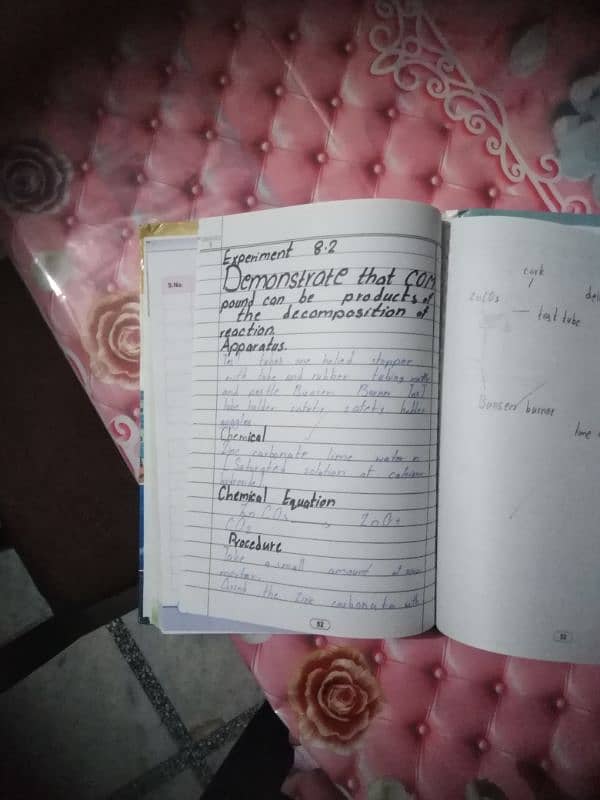 S.No.
Experiment 8.2
Demonstrate that com
pound can be products of
the decomposition of
reaction.
Apparatus.
Test tubes one holed stopper
with tube and rubber tubing
and pestle Bunsen Test
tube holder safety
goggles
Chemical
Zinc carbonate lime water
Saturated solution of calcium
Chemical Equation
ZnCO3 → ZnO +
CO2
Procedure
Take a small amount of
mortar.
Grind the zinc carbonate with
52
cork
ZnCO3
test tube
Bunsen burner
lime
53